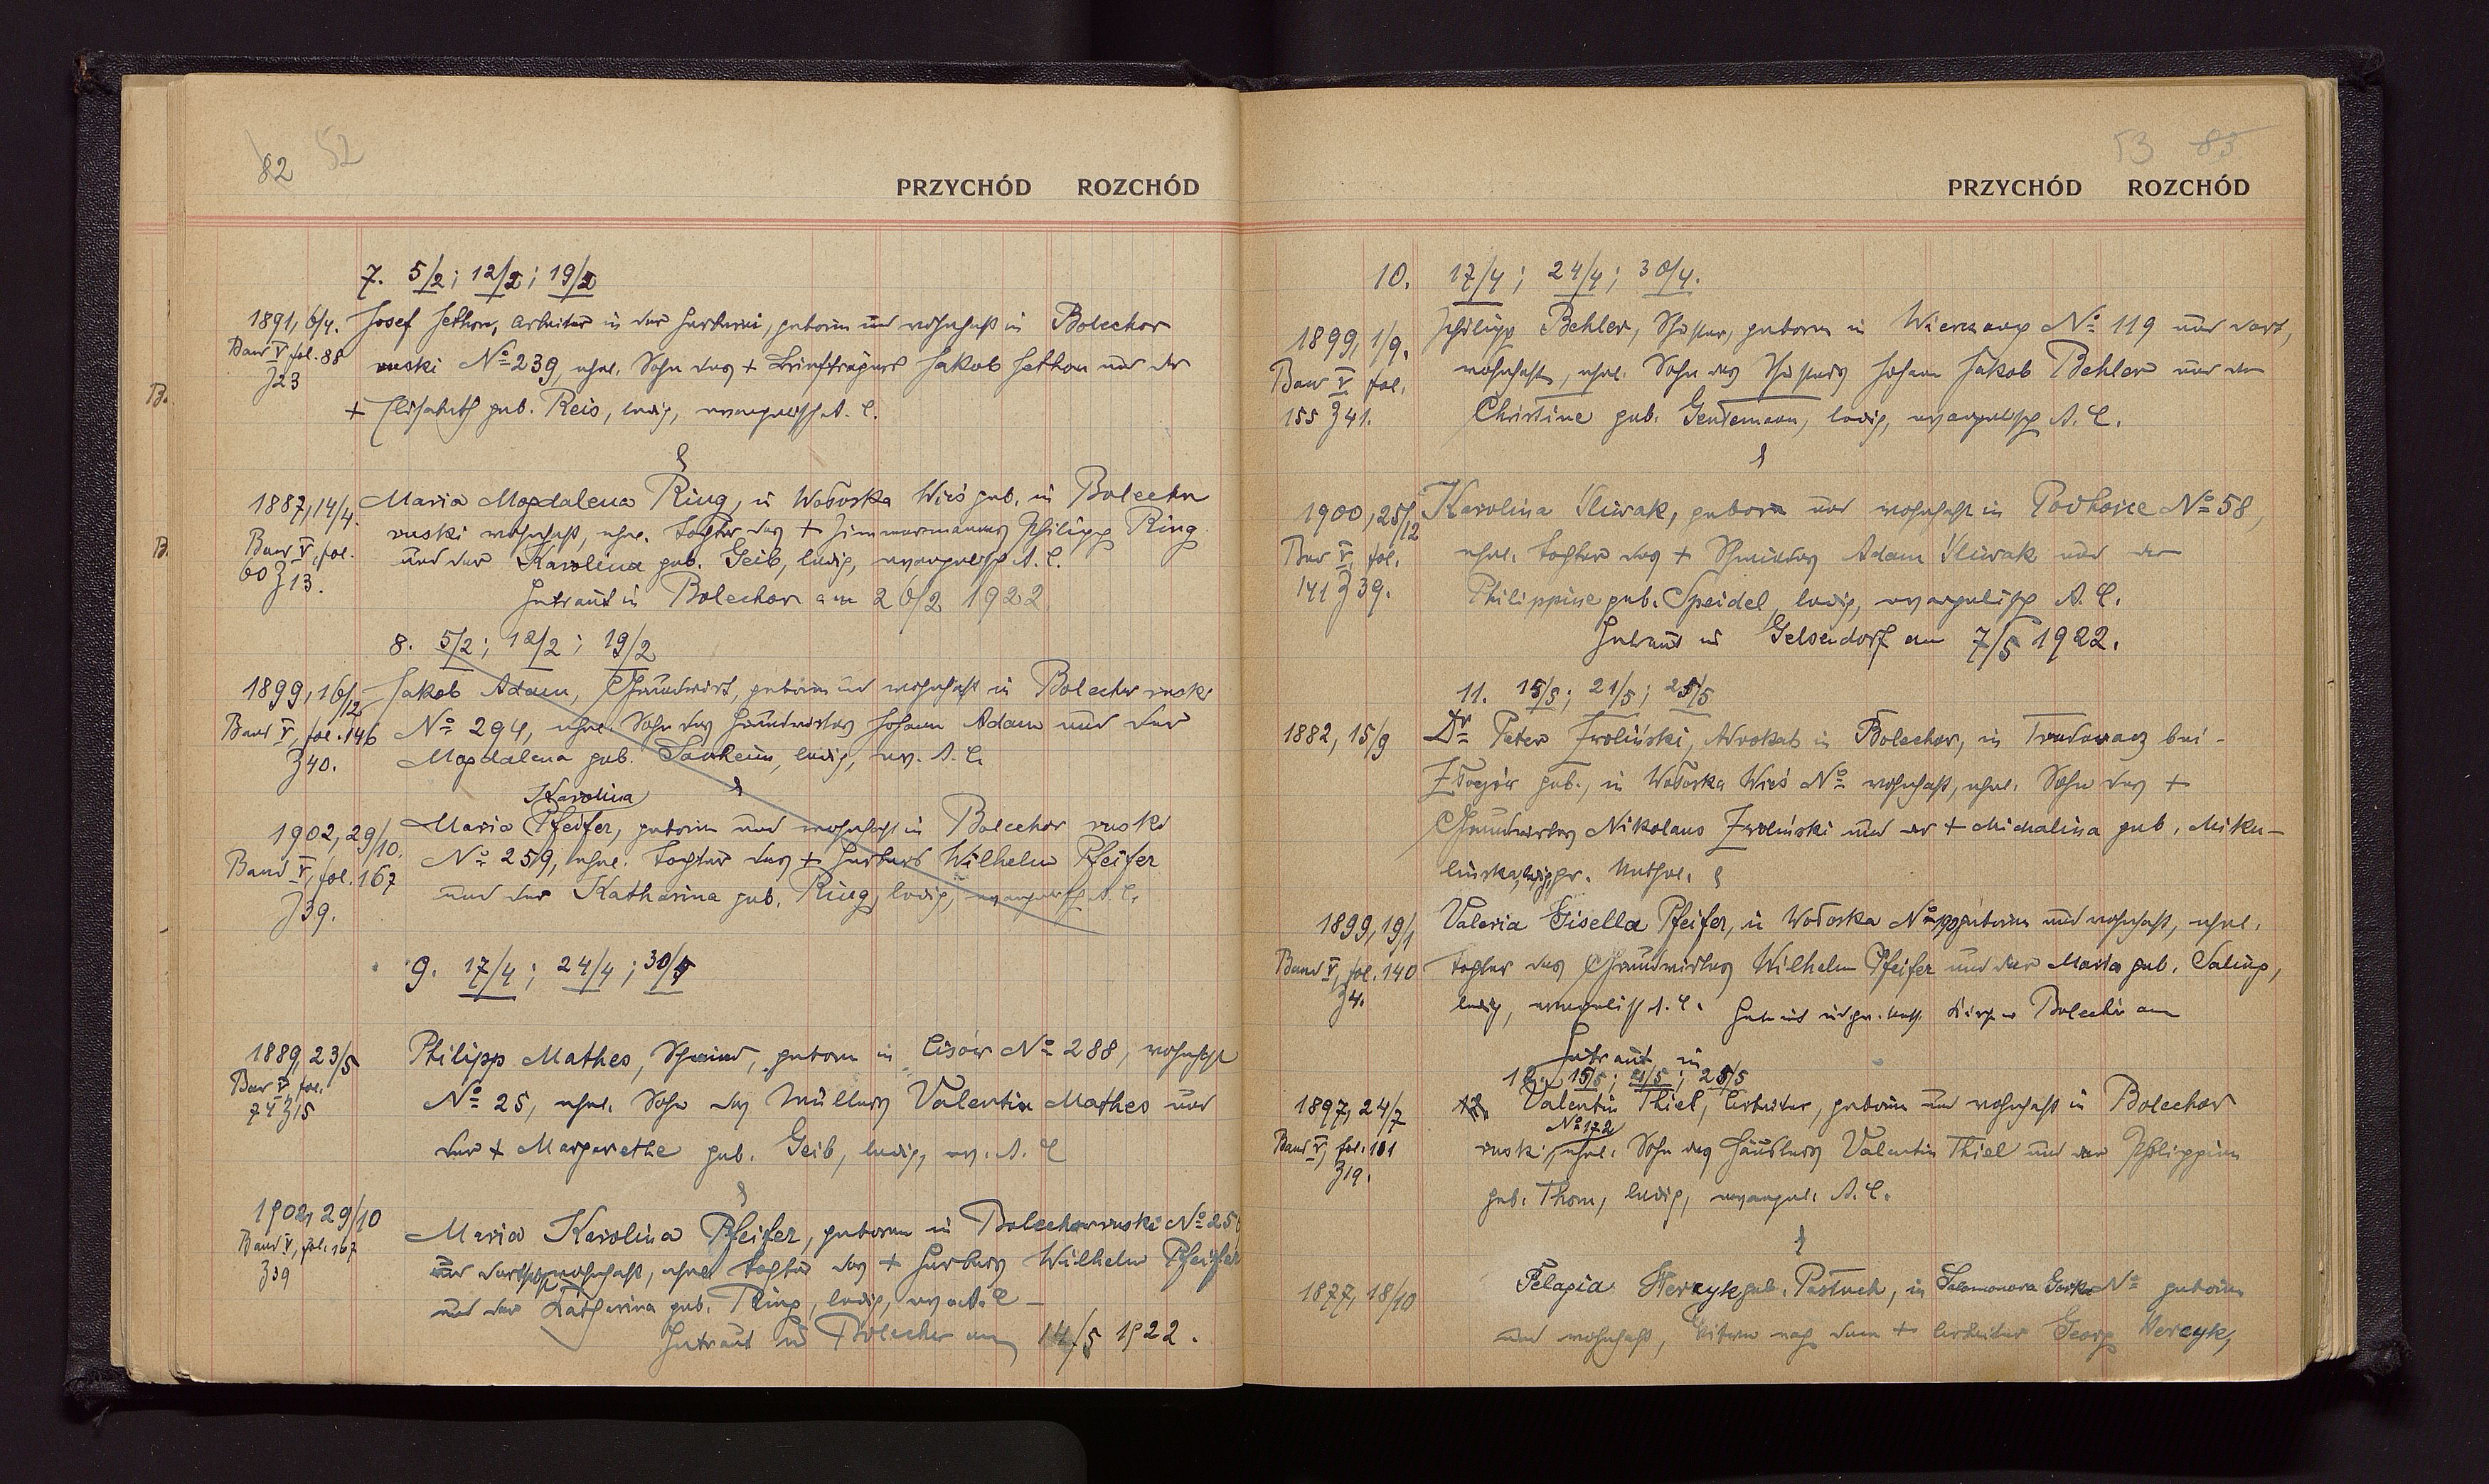 82 52
PRZYCHÓD ROZCHÓD
7. 5/2; 12/2; 19/2
1891, 6/4. Josef Jethon, Arbeiter in der Gerberei, geboren und wohnhaft in Bolechow
Band V, fol. 88 ruski No 239, ehel. Sohn des + Briefträgers Jakob Jethon und der
Z 23
+ Elisabeth geb. Reis, ledig, evangelisch A. C.
&
1887, 14/4. Maria Magdalena Ring, in Wołoska Wieś geb., in Bolechów
Band V, fol. ruski wohnhaft, ehel. Tochter des + Zimmermannes Philipp Ring
60 Z 13. und der Karolina geb. Geib, ledig, evangelisch A. C.
Getraut in Bolechow am 26/2 1922
8. 5/2; 12/2; 19/2
1899, 16/12 Jakob Adam, Grundwirt, geboren und wohnhaft in Bolechów ruski
Band V, fol. 146 No 294, ehel. Sohn des Grundwirtes Johann Adam und der
Z 40. Magdalena geb. ledig, ev. A. C.
&
Karolina
1902, 29/10. Maria Pfeifer, geboren und wohnhaft in Bolechow ruski
Band V, fol. 167 No 259, ehel. Tochter des + Gerbers Wilhelm Pfeifer
Z 39. und der Katharina geb. Ring, ledig, evangelisch A. C.
9. 17/4; 24/4; 30/4
1889, 23/5 Philipp Mathes, Schmied, geboren in Lisów No 288, wohnhaft
Band V, fol. 74 Z 15 No 25, ehel. Sohn des Müllers Valentin Mathes und
der + Margarethe geb. Geib, ledig, ev. A. C
&
1902, 29/10 Maria Karolina Pfeifer, geboren in Bolechow ruski No 25
Band V, fol. 167 und wohnhaft, ehel. Tochter des + Gerbers Wilhelm Pfeifer
Z 39 und der Katharina geb. Ring, ledig, ev. A. C
Getraut in Bolechow am 14/5 1922.
53 83
PRZYCHÓD ROZCHÓD
10. 17/4; 24/4; 30/4.
1899, 1/9. Philipp Behler, Schuster, geboren in No 119 und dort,
Band V fol. wohnhaft, ehel. Sohn des Schusters Johann Jakob Behler und der
155 Z 41. Christine geb. Gentemann, ledig, evangelisch A. C.
&
1900, 25/12 Karolina Sliwak, geboren und wohnhaft in No 58,
Band V, fol. ehel. Tochter des + Schmiedes Adam Sliwak und der
141 Z 39. Philippine geb. Speidel, ledig, evangelisch A. C.
Getraut in Gelsendorf am 7/5 1922.
11. 15/5; 21/5; 25/5
1882, 15/9 Dr Peter Zwoliński, Advokat in Bolechow, in bei
geb., in Wołoska Wieś No wohnhaft, ehel. Sohn des +
Grundwirtes Nikolaus Zwoliński und der + Michalina geb. Miku-
lińska, ledig, gr. kathol. &
1899, 19/1 Valeria Gisella Pfeifer, in Wołoska No geboren und wohnhaft, ehel.
Band V, fol. 140 Tochter des Grundwirtes Wilhelm Pfeifer und der Maria geb. Saling,
Z 4. ledig, evangelisch A. C. Getraut in gr. kath. Kirche Bolechów am
Getraut in
12. 15/5; 21/5; 25/5
1897, 24/7 12. Valentin Thiel, Arbeiter, geboren und wohnhaft in Bolechow
No 172
Band V, fol. 101 ruski, ehel. Sohn des Häuslers Valentin Thiel und der Philippine
Z 19. geb. Thom, ledig, evangel. A. C.
&
1877, 18/10 Pelagia Hercyk geb. Pastuch, in Salamonowa Gorka No geboren
und wohnhaft, Witwe nach dem + Arbeiter Georg Hercyk,